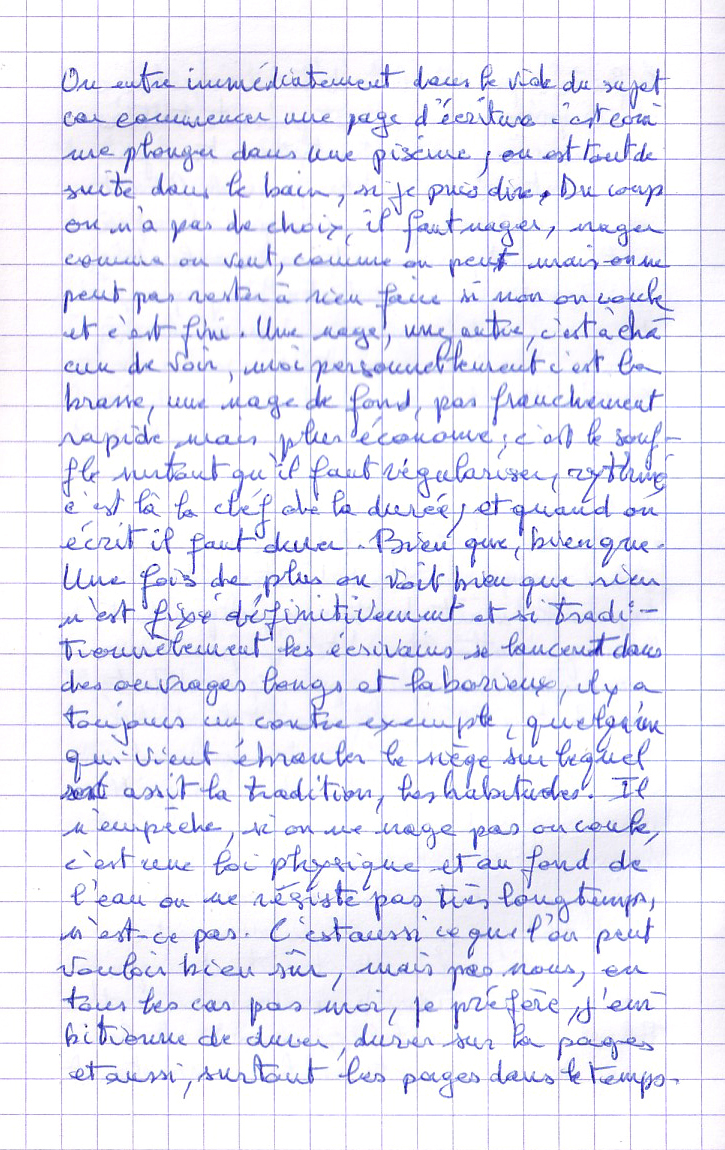 On entre immédiatement dans le vide du sujet
car commencer une page d'écriture c'est com
me plonger dans une piscine, on est tout de
suite dans le bain, si je puis dire. Du coup
on n'a pas de choix, il faut nager, nager
comme on veut, comme on peut mais on ne
peut pas rester à rien faire si non on coule
et c'est fini. Une nage, une autre, c'est à cha
cun de voir, moi personnellement c'est la
brasse, une nage de fond, pas franchement
rapide mais plus économe ; c'est le souf-
fle surtout qu'il faut régulariser, rythmé
c'est là la clef de la durée, et quand on
écrit il faut durer. Bien que, bien que.
Une fois de plus on voit bien que rien
n'est fixé définitivement et si tradi-
tionnellement les écrivains se lancent dans
des ouvrages longs et laborieux, il y a
toujours un contre exemple, quelqu'un
qui vient ébranler le siège sur lequel
est assit la tradition, les habitudes. Il
n'empêche, si on ne nage pas on coule,
c'est une loi physique et au fond de
l'eau on ne résiste pas très longtemps,
n'est-ce pas. C'est aussi ce que l'on peut
vouloir bien sûr, mais pas nous, en
tous les cas pas moi, je préfère, j'am
bitionne de durer, durer sur la pages
et aussi, surtout les pages dans le temps.